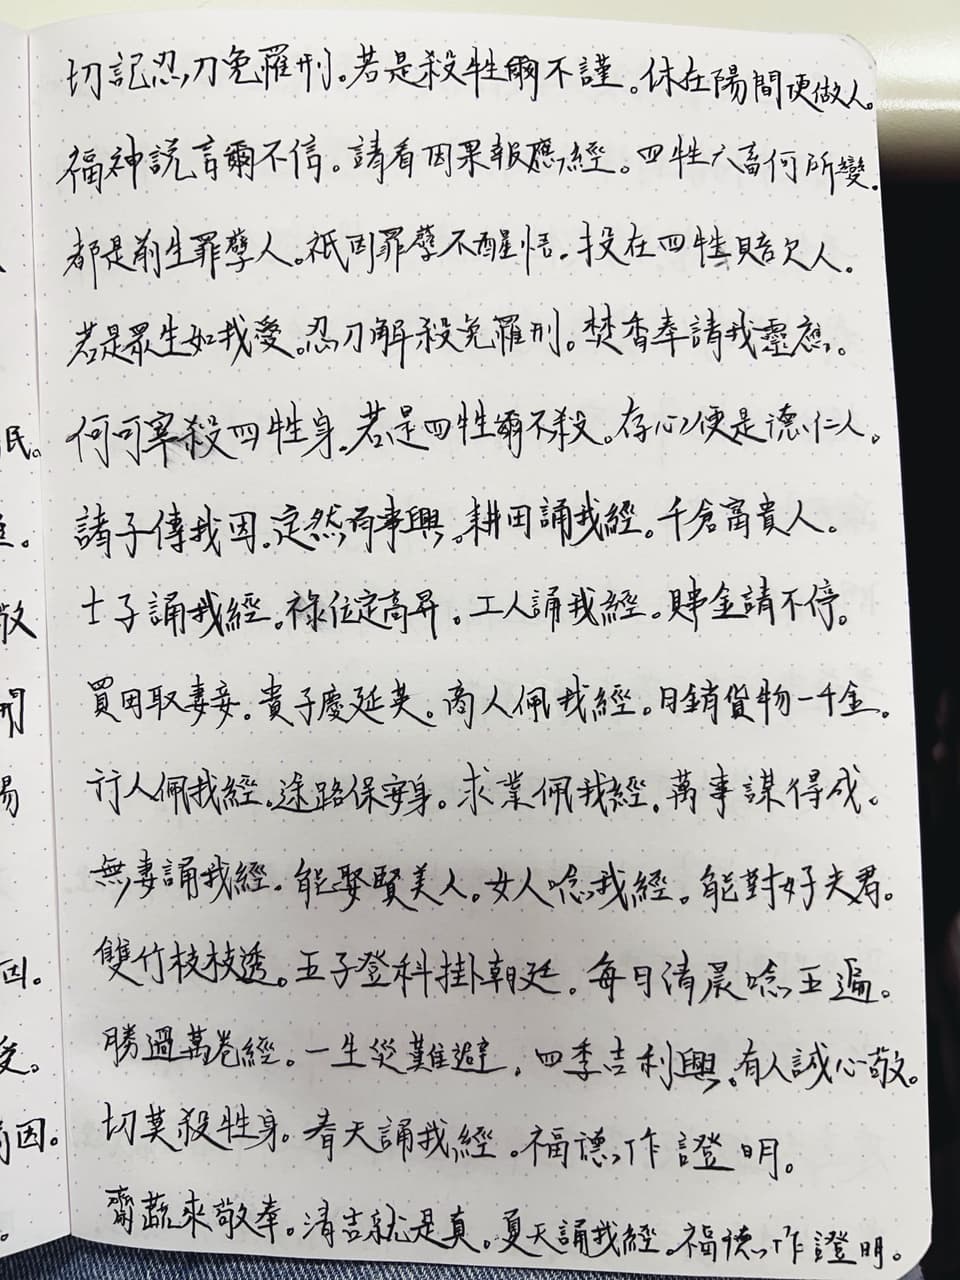 切記忍刀免羅刑。若是殺牲爾不謹。休在陽間更做人。
福神說言爾不信。請看因果報應經。四牲六畜何所變。
都是前生罪孽人。祇因罪孽不醒悟。投在四牲賠欠人。
若是眾生如我愛。忍刀解殺免羅刑。焚香奉請我靈應。
何可宰殺四牲身。若是四牲爾不殺。存心便是德仁人。
諸子傳我因。定然有事興。耕田誦我經。千倉富貴人。
士子誦我經。祿位定高昇。工人誦我經。財金請不停。
買田取妻妾。貴子慶延英。商人佩我經。日銷貨物一千金。
行人佩我經。途路保安身。求業佩我經。萬事謀得成。
無妻誦我經。能娶賢美人。女人唸我經。能對好夫君。
雙竹枝枝透。五子登科掛朝廷。每日清晨唸五遍。
勝過萬卷經。一生災難避。四季吉利興。有人誠心敬。
切莫殺牲身。春天誦我經。福德作證明。
齋蔬來敬奉。清吉就是真。夏天誦我經。福德作證明。
民。
敬
開
陽
因。
受。
因。